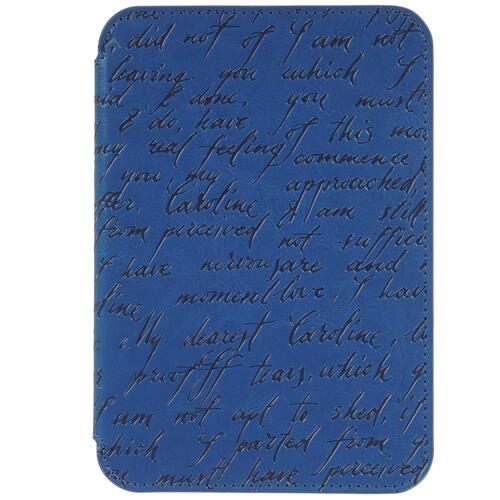 did not of I am not
leaving you which I
and I done, you must
I do, have of this mom
my real feeling commence
you, my approached,
ffer. Caroline I am still
from perceived not suffici
I have nervous are and n
moment love, I hav
oline
My dearest Caroline,
r proof ff tears, which y
I am not apt to shed, if
which I parted from y
must have perceived